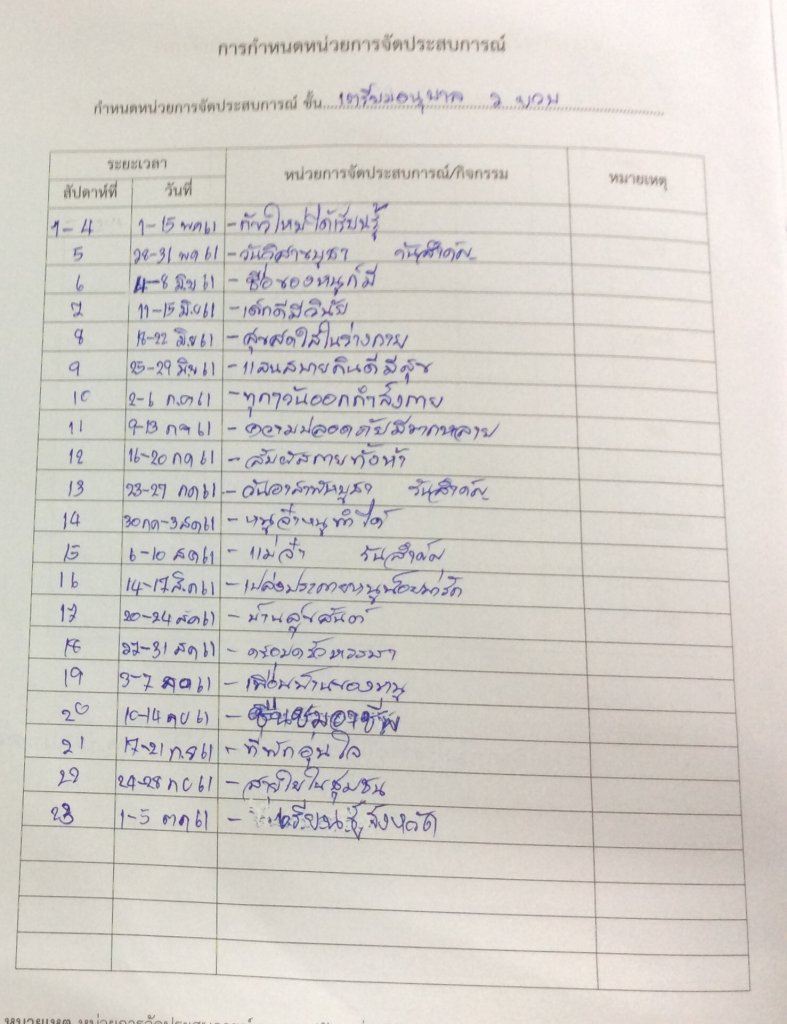 การกำหนดหน่วยการจัดประสบการณ์
กำหนดหน่วยการจัดประสบการณ์ ชั้น เตรียมอนุบาล ๖ ขวบ
ระยะเวลา หน่วยการจัดประสบการณ์/กิจกรรม หมายเหตุ
สัปดาห์ที่ วันที่
1-4 1-15 พค61 -ก้าวใหม่ได้เรียนรู้
5 28-31 พค 61 -วันวิสาขบูชา วันสำคัญ
6 4-8 มิย 61 -ชื่อของหนูก็มี
7 11-15 มิย61 -เด็กดีมีวินัย
8 18-22 มิย61 -สุขสดใสในร่างกาย
9 25-29 มิย 61 -แสนสบายกินดีมีสุข
10 2-6 กค61 -ทุกๆวันออกกำลังกาย
11 9-13 กค 61 -ความปลอดภัยมีมากหลาย
12 16-20 กค 61 -สัมผัสกายทั้งห้า
13 23-27 กค61 -วันอาสาฬหบูชา วันสำคัญ
14 30กค-3สค61 -หนูจ๋าหนูทำได้
15 6-10 สค61 -แม่จ๋า วันสำคัญ
16 14-17สิค61 -เปล่งประกายหนูน้อยน่ารัก
17 20-24 สค61 -บ้านสุขสันต์
18 27-31 สค 61 -ครอบครัวหรรษา
19 3-7 61 -เพื่อนบ้านของหนู
20 10-14 กย 61 -ชื่นชมอาชีพ
21 17-21 กย 61 -ที่พักอุ่นใจ
22 24-28 กย 61 -สายใยในชุมชน
23 1-5 ตค 61 - เรียนรู้จังหวัด
หมายเหตุ หน่วยการจัดประสบการณ์